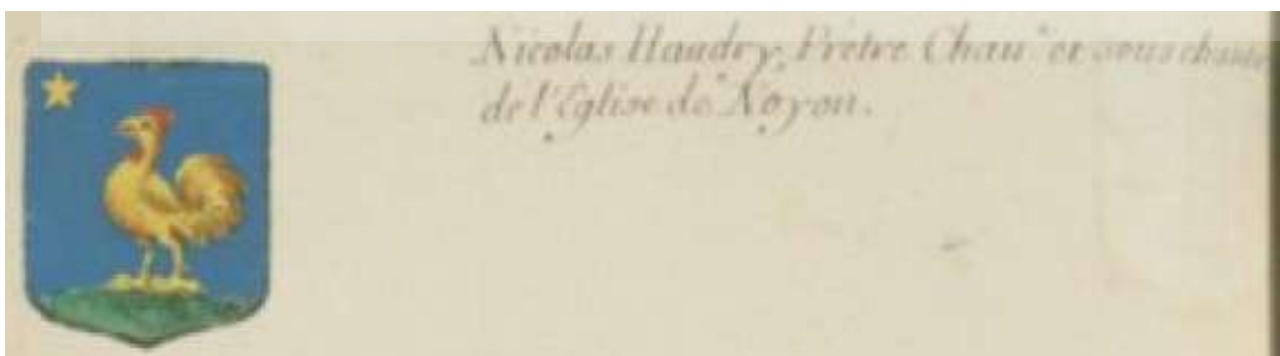 Nicolas Haudry, Prêtre Chan.ᵉ et sous chantre
de l'Eglise de Noyon.